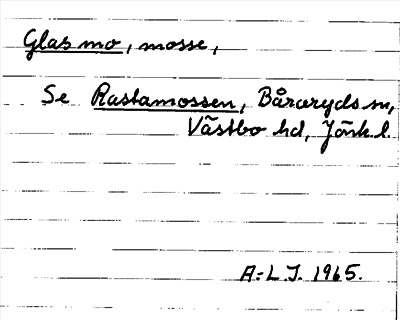 Glas mo, mosse,
Se Rastamossen, Båraryds sn,
Västbo hd, Jönk. l.
A:-L J. 1965.